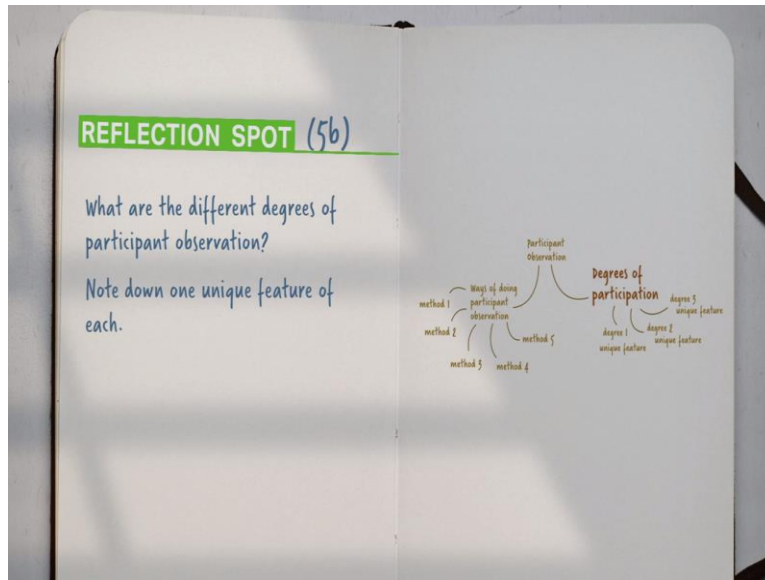 REFLECTION SPOT (5b)
What are the different degrees of
participant observation?
Note down one unique feature of
each.
Participant
Observation
Ways of doing
participant
observation
method 1
method 2
method 3
method 4
method 5
Degrees of
participation
degree 1
unique feature
degree 2
unique feature
degree 3
unique feature